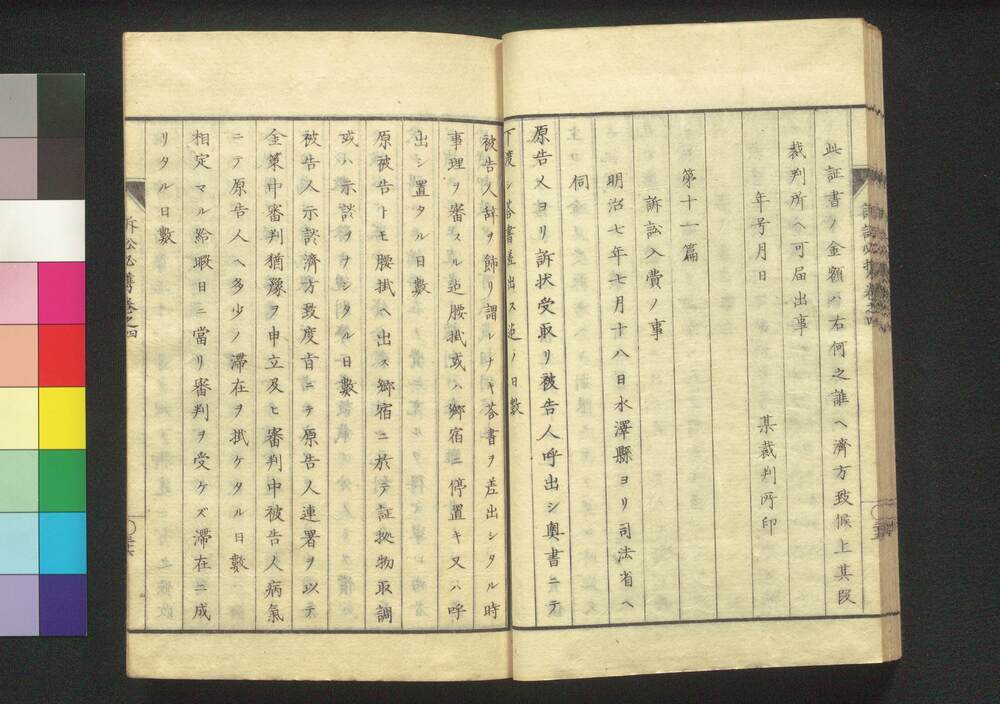 此証書ノ金額ハ右何之誰ヘ濟方致候上其段
裁判所ヘ可届出事
年号月日
某裁判所印
第十一篇
訴訟入費ノ事
明治七年七月十八日水澤縣ヨリ司法省ヘ
伺
原告人ヨリ訴状受取リ被告人呼出シ奥書ニテ
下渡シ荅書差出ス迠ノ日數
被告人辞ヲ飾リ謂レナキ荅書ヲ差出シタル時
事理ヲ審スル迠腰掛或ハ郷宿ニ停置キ又ハ呼
出シ置タル日數
原被告トモ腰掛ヘ出ス郷宿ニ於テ証拠物取調
或ハ示談ヲナシタル日數
被告人示談濟方致度旨ニテ原告人連署ヲ以テ
金策中審判猶豫ヲ申立及ヒ審判中被告人病氣
ニテ原告人ヘ多少ノ滞在ヲ掛ケタル日數
相定マル給暇日ニ當リ審判ヲ受ケズ滞在ニ成
リタル日數
訴訟必携巻之四